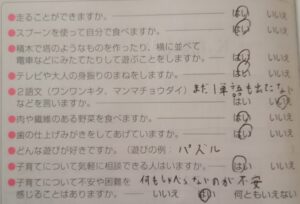 ●走ることができますか。 はい いいえ
●スプーンを使って自分で食べますか。 はい いいえ
●積木で塔のようなものを作ったり、横に並べて
電車などにみたてたりして遊ぶことをしますか。 はい いいえ
●テレビや大人の身振りのまねをしますか。 はい いいえ
●2語文（ワンワンキタ、マンマチョウダイ） まだ1単語も出たない
などを言いますか。 はい いいえ
●肉や繊維のある野菜を食べますか。 はい いいえ
●歯の仕上げみがきをしてあげていますか。 はい いいえ
●どんな遊びが好きですか。（遊びの例： パズル
●子育てについて気軽に相談できる人はいますか。 はい いいえ
●子育てについて不安や困難を 何もしゃべらないのが不安
感じることはありますか。 いいえ はい 何ともいえない